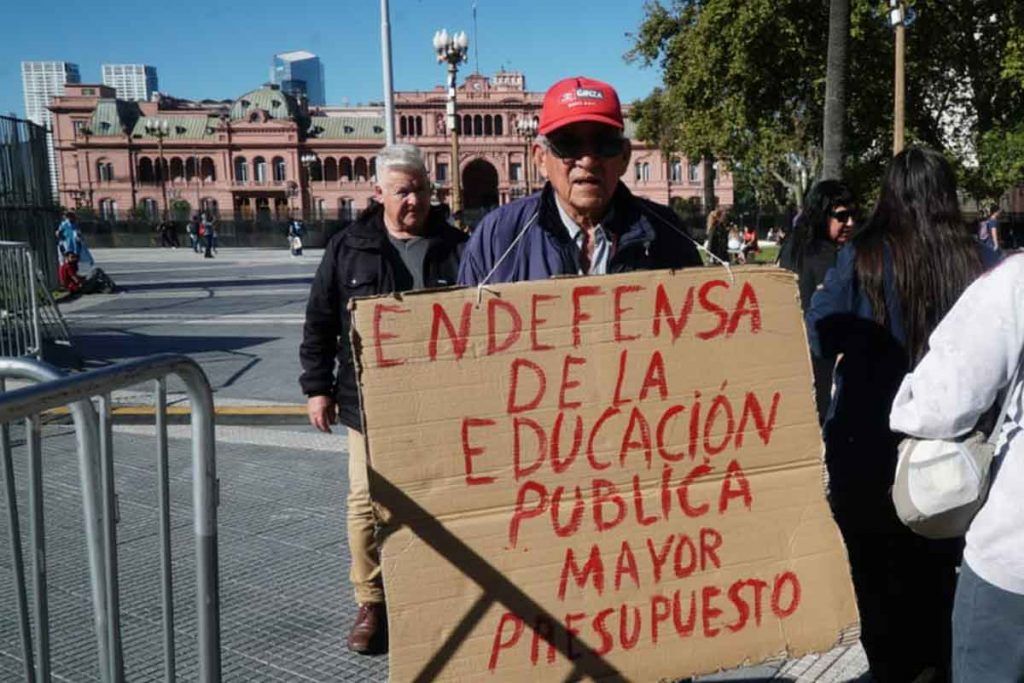 GANZA
ENDEFENSA
DE LA
EDUCACIÓN
PUBLICA
MAYOR
PRESUPUESTO